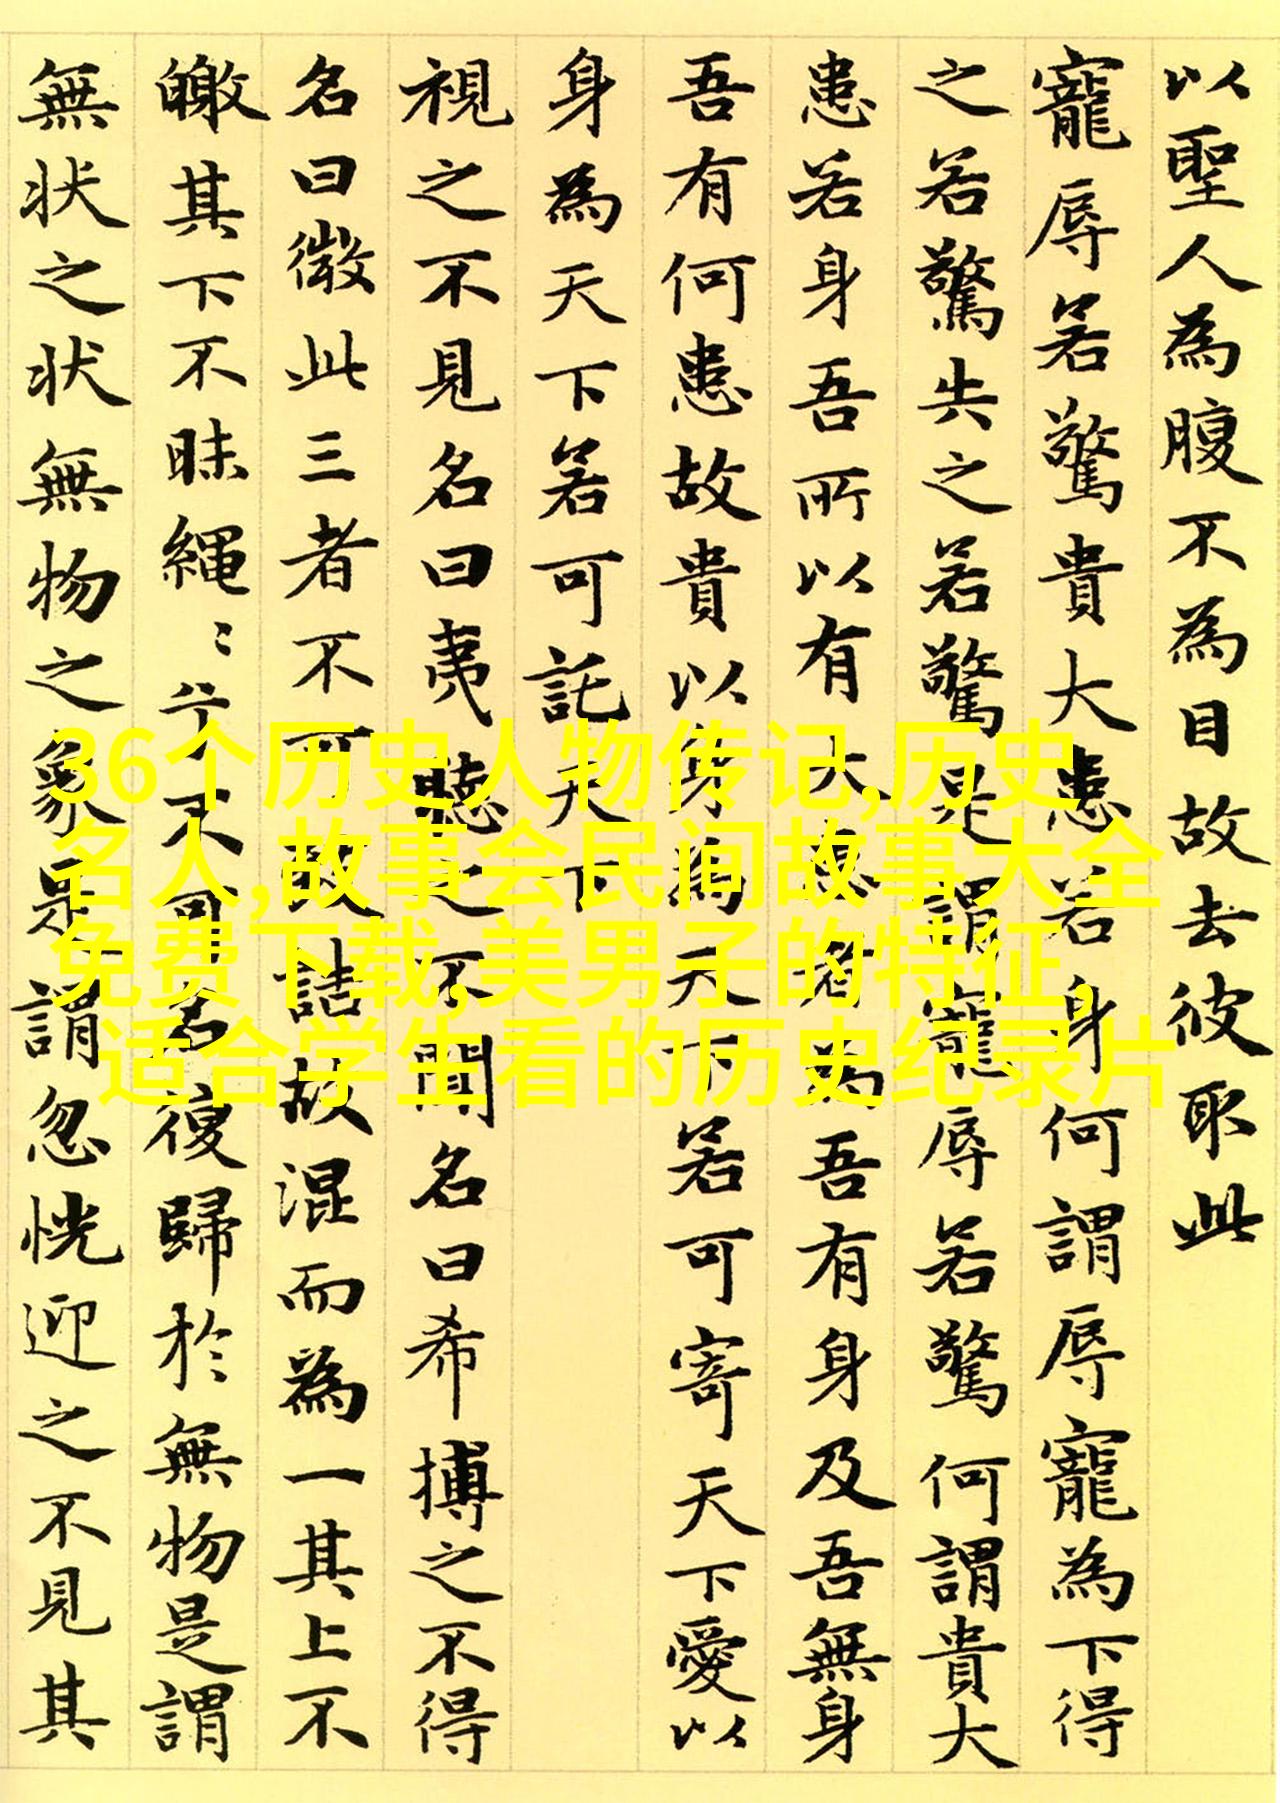 以聖人為腹不為目故去彼取此
寵辱若驚貴大患若身何謂辱寵為下得
之若驚失之若驚是謂寵辱若驚何謂貴大
患若身吾所以有大患者為吾有身及吾無身
吾有何患故貴以身為天下若可寄天下愛以
身為天下若可託天下
視之不見名曰夷聽之不聞名曰希搏之不得
名曰微此三者不可致詰故混而為一其上不
皦其下不昧繩〻兮不可名復歸於無物是謂
無状之状無物之象是謂忽恍迎之不見其
36个历史人物传记,历史
名人,故事会民间故事大全
免费下载,美男子的特征,
适合学生看的历史纪录片